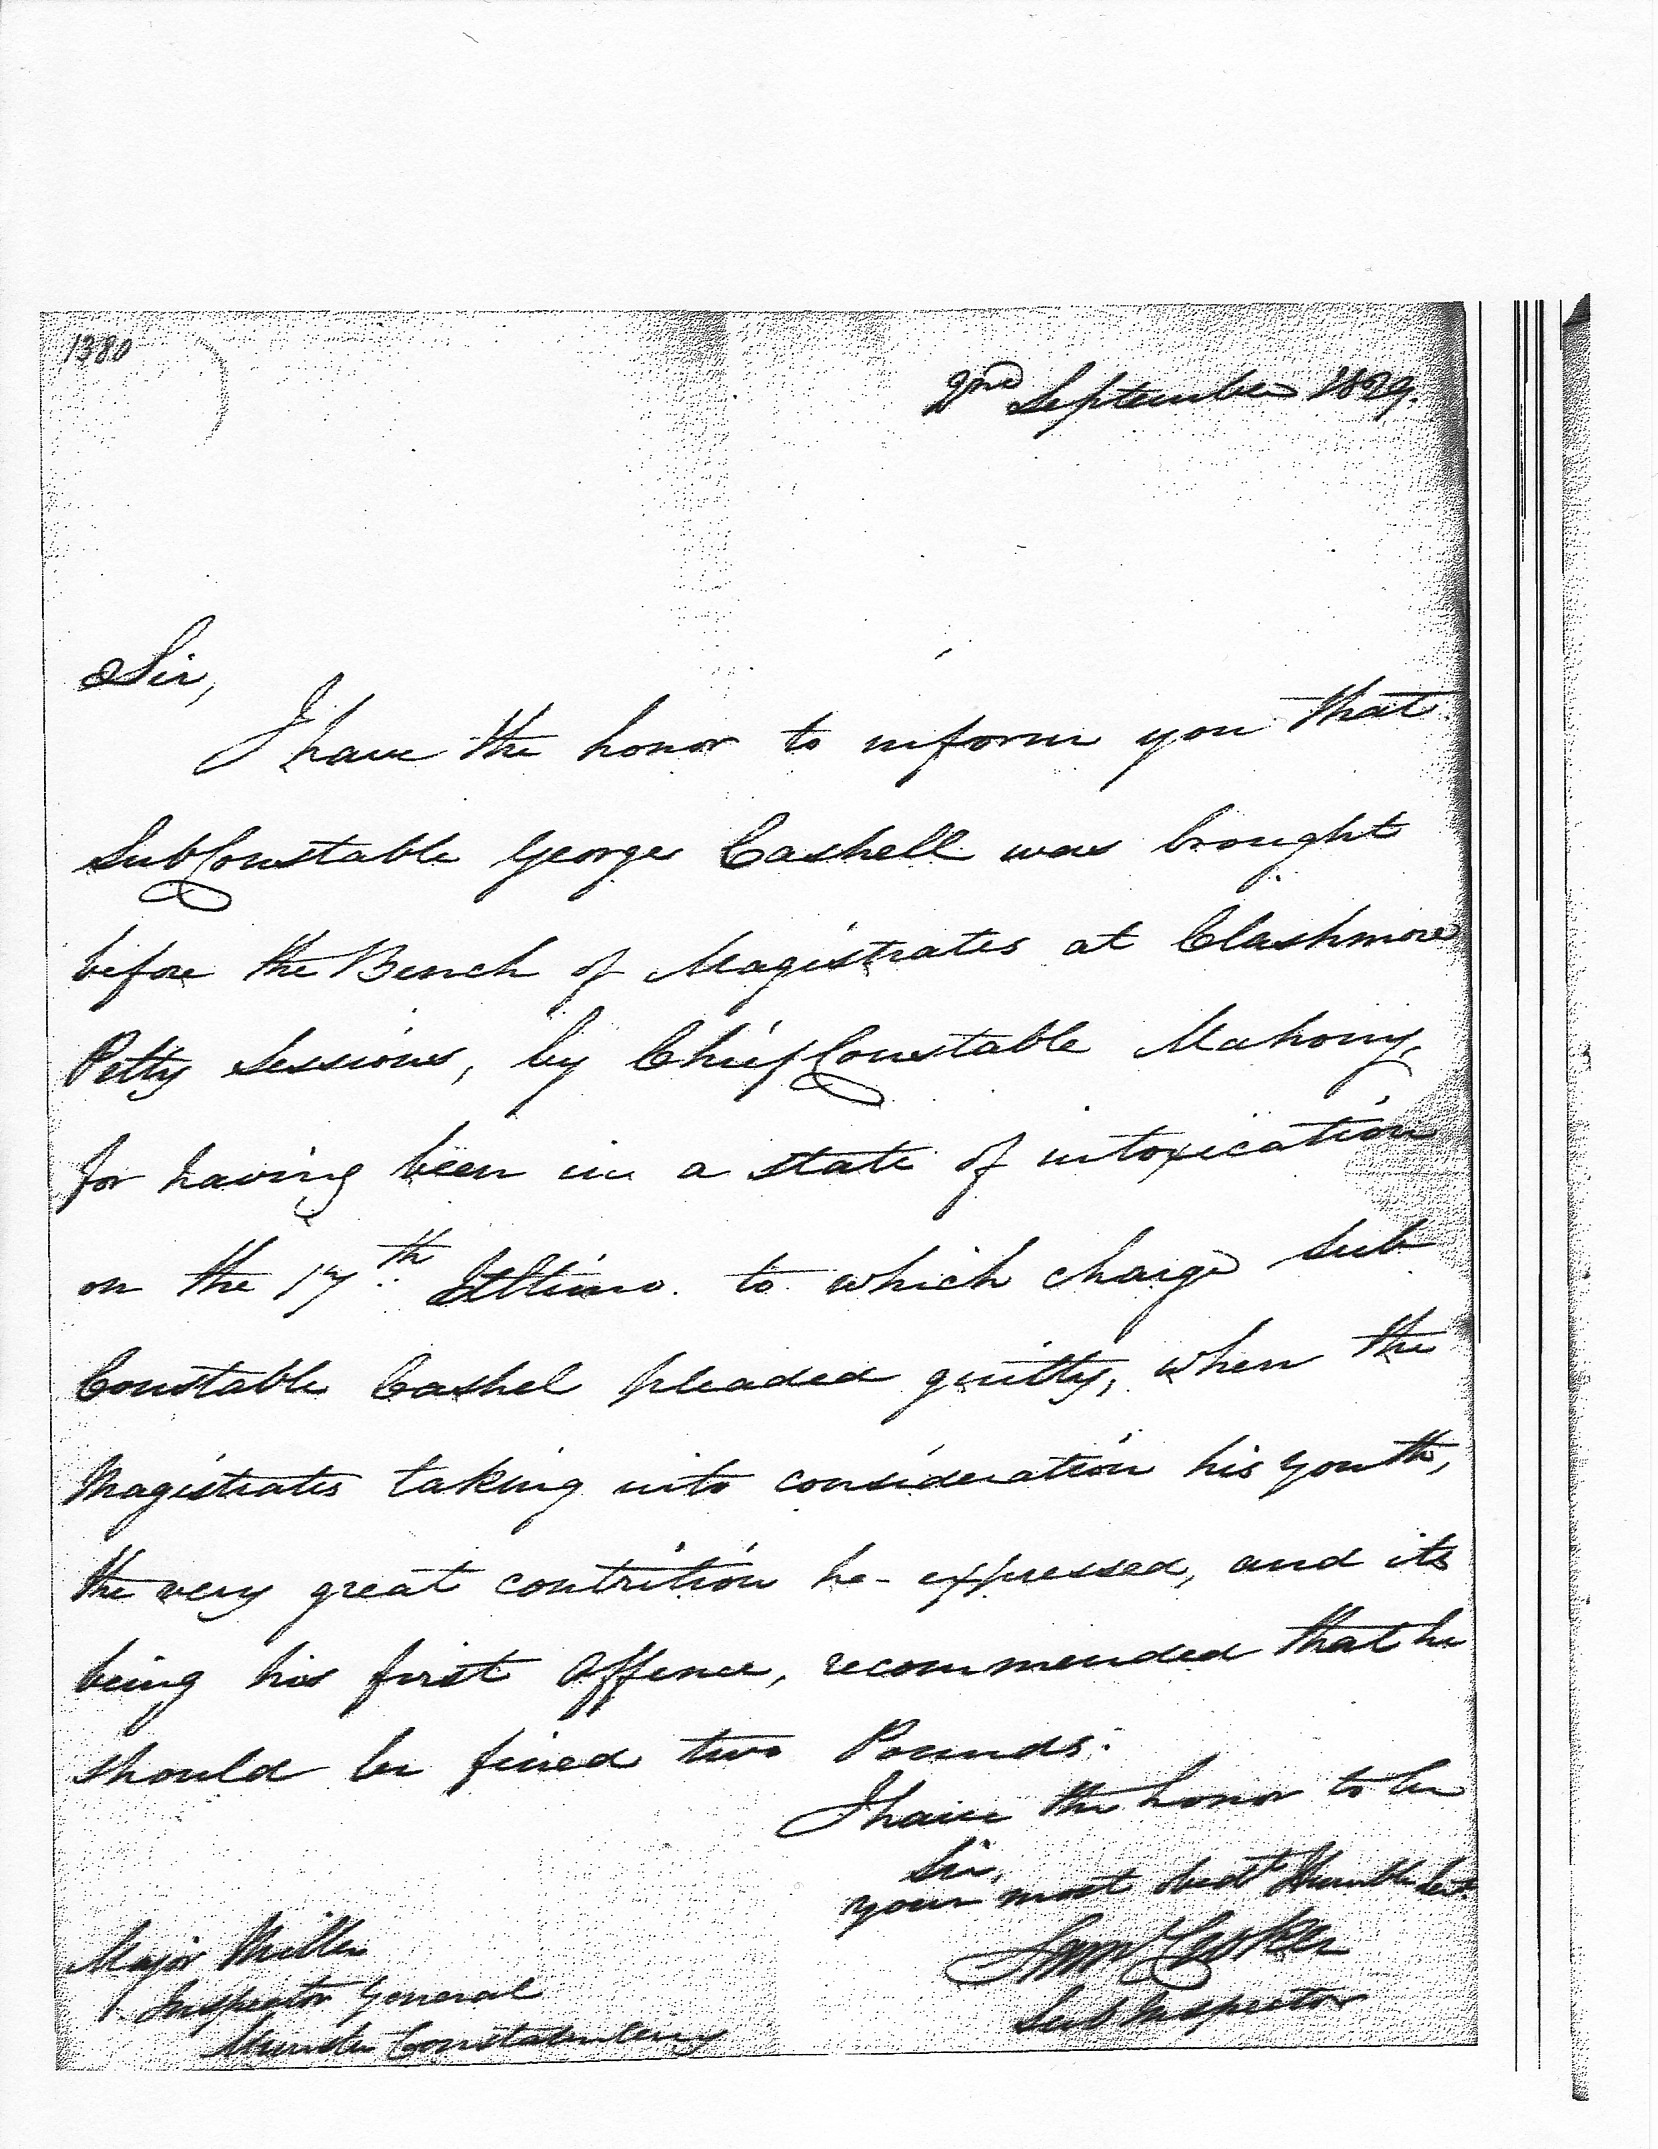 1380
2nd September 1829.
Sir,
I have the honor to inform you that
SubConstable George Cashell was brought
before the Bench of Magistrates at Clashmore
Petty Sessions, by Chief Constable Mahony,
for having been in a state of intoxication
on the 17th Ultimo. to which charge Sub
Constable Cashel pleaded guilty, when the
Magistrates taking into consideration his youth,
the very great contrition he expressed, and its
being his first offence, recommended that he
should be fined two Pounds.
I have the honor to be
Sir,
your most obedt Humble Sert
Saml Croker
Sub Inspector
Major Miller
Inspector General
Munster Constabulary